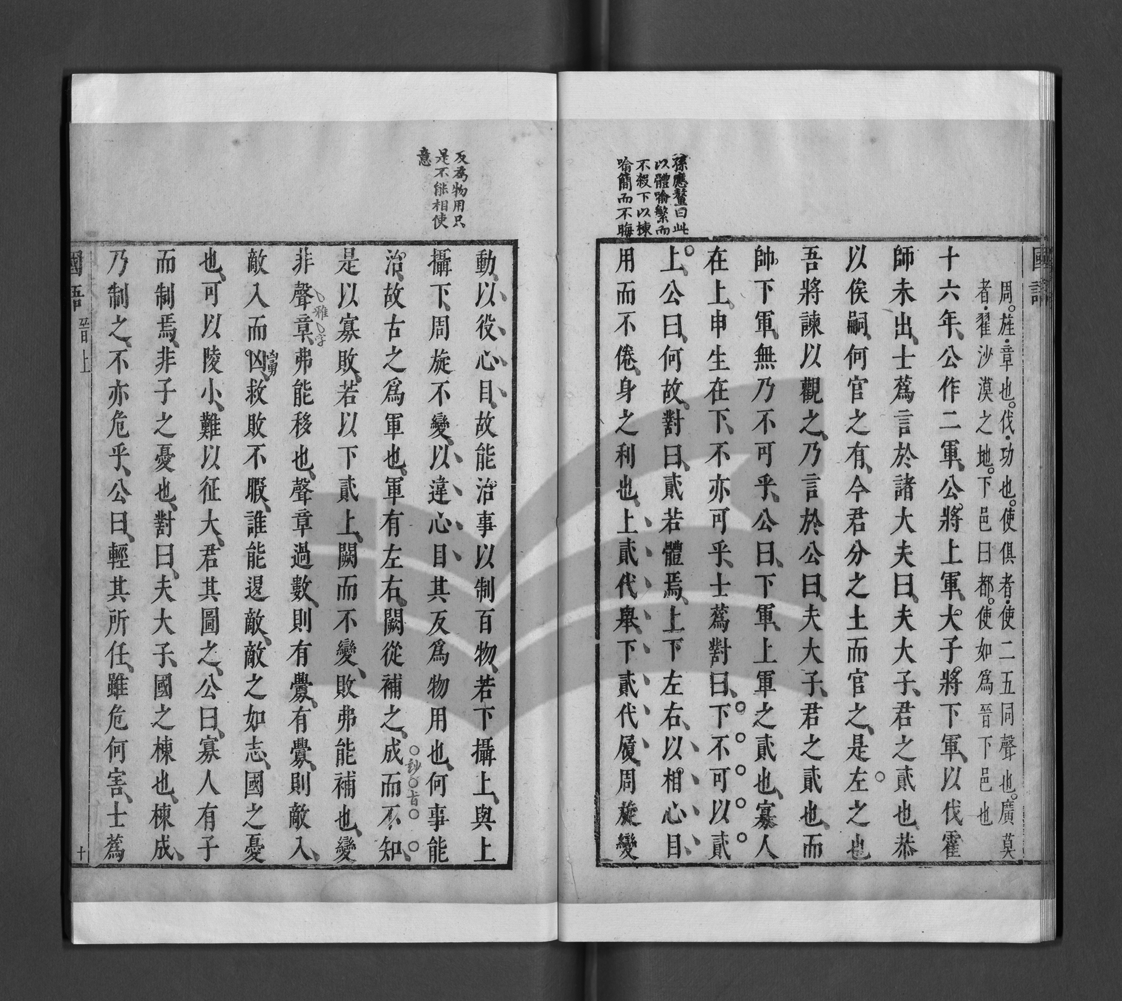 國語
周。旌、章也。伐、功也。使俱者使二五同聲也。廣莫
者、翟沙漠之地。下邑曰都。使如為晉下邑也
十六年、公作二軍、公將上軍、大子將下軍、以伐霍
師未出、士蒍言於諸大夫曰、夫大子、君之貳也、恭
以俟嗣、何官之有、今君分之土而官之、是左之也
吾將諫以觀之、乃言於公曰、夫大子、君之貳也、而
帥下軍、無乃不可乎、公曰、下軍、上軍之貳也、寡人
在上、申生在下、不亦可乎、士蒍對曰、下不可以貳
上。公曰、何故、對曰、貳若體焉、上下左右、以相心目、
用而不倦、身之利也、上貳代舉、下貳代履、周旋變
孫應鰲曰此
以體喻繁而
不殺下以棟
喻簡而不晦
動、以役心目、故能治事以制百物、若下攝上、與上
攝下、周旋不變、以違心目、其反為物用也、何事能
治、故古之為軍也、軍有左右、闕從補之、成而不知、
是以寡敗、若以下貳上、闕而不變、敗弗能補也、變
非聲章、弗能移也、聲章過數、則有釁、有釁、則敵入、
敵入而凶、救敗不暇、誰能退敵、敵之如志、國之憂
也、可以陵小、難以征大、君其圖之、公曰、寡人有子
而制焉、非子之憂也、對曰、夫大子、國之棟也、棟成、
乃制之、不亦危乎、公曰、輕其所任、雖危何害、士蒍
反為物用只
是不能相使
意
國語 晉上
十